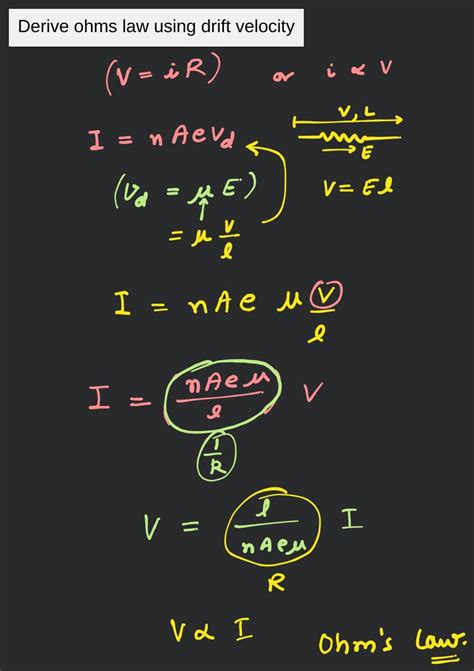 Derive ohms law using drift velocity
(V = iR) or i ∝ V
V, L
I = nAeVd
E
(Vd = μE) V = El
= μ V/l
I = nAe μ V/l
I = nAeμ/l V
1/R
V = l/nAeμ I
R
V ∝ I Ohm's Law.